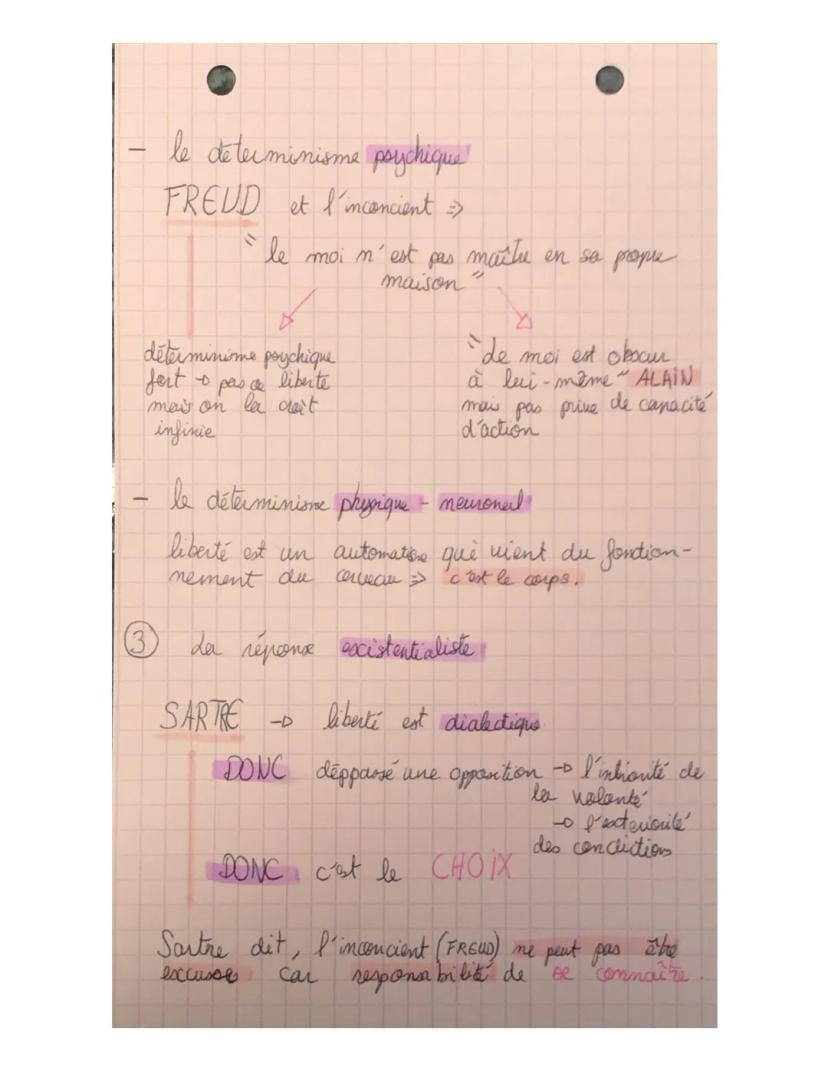 - le déterminisme psychique
FREUD et l'inconcient =>
" le moi n'est pas maître en sa propre
maison "
déterminime psychique
fort → pas de liberté
mais on la croit
infinie
" de moi est obscur
à lui-même " ALAIN
mais pas prive de capacité
d'action
- le déterminisme physique - neuronal
liberté est un automatisme qui vient du fonction-
nement du cerveau => c'est le corps.
③ La réponse existentialiste
SARTRE → liberté est dialectique
DONC déppassé une opposition → l'intériorité de
la volonté
→ l'exteriorité
des condictions
DONC c'est le CHOIX
Sartre dit, l'inconcient (FREUD) ne peut pas être
excusee car responsabilité de se connaître.